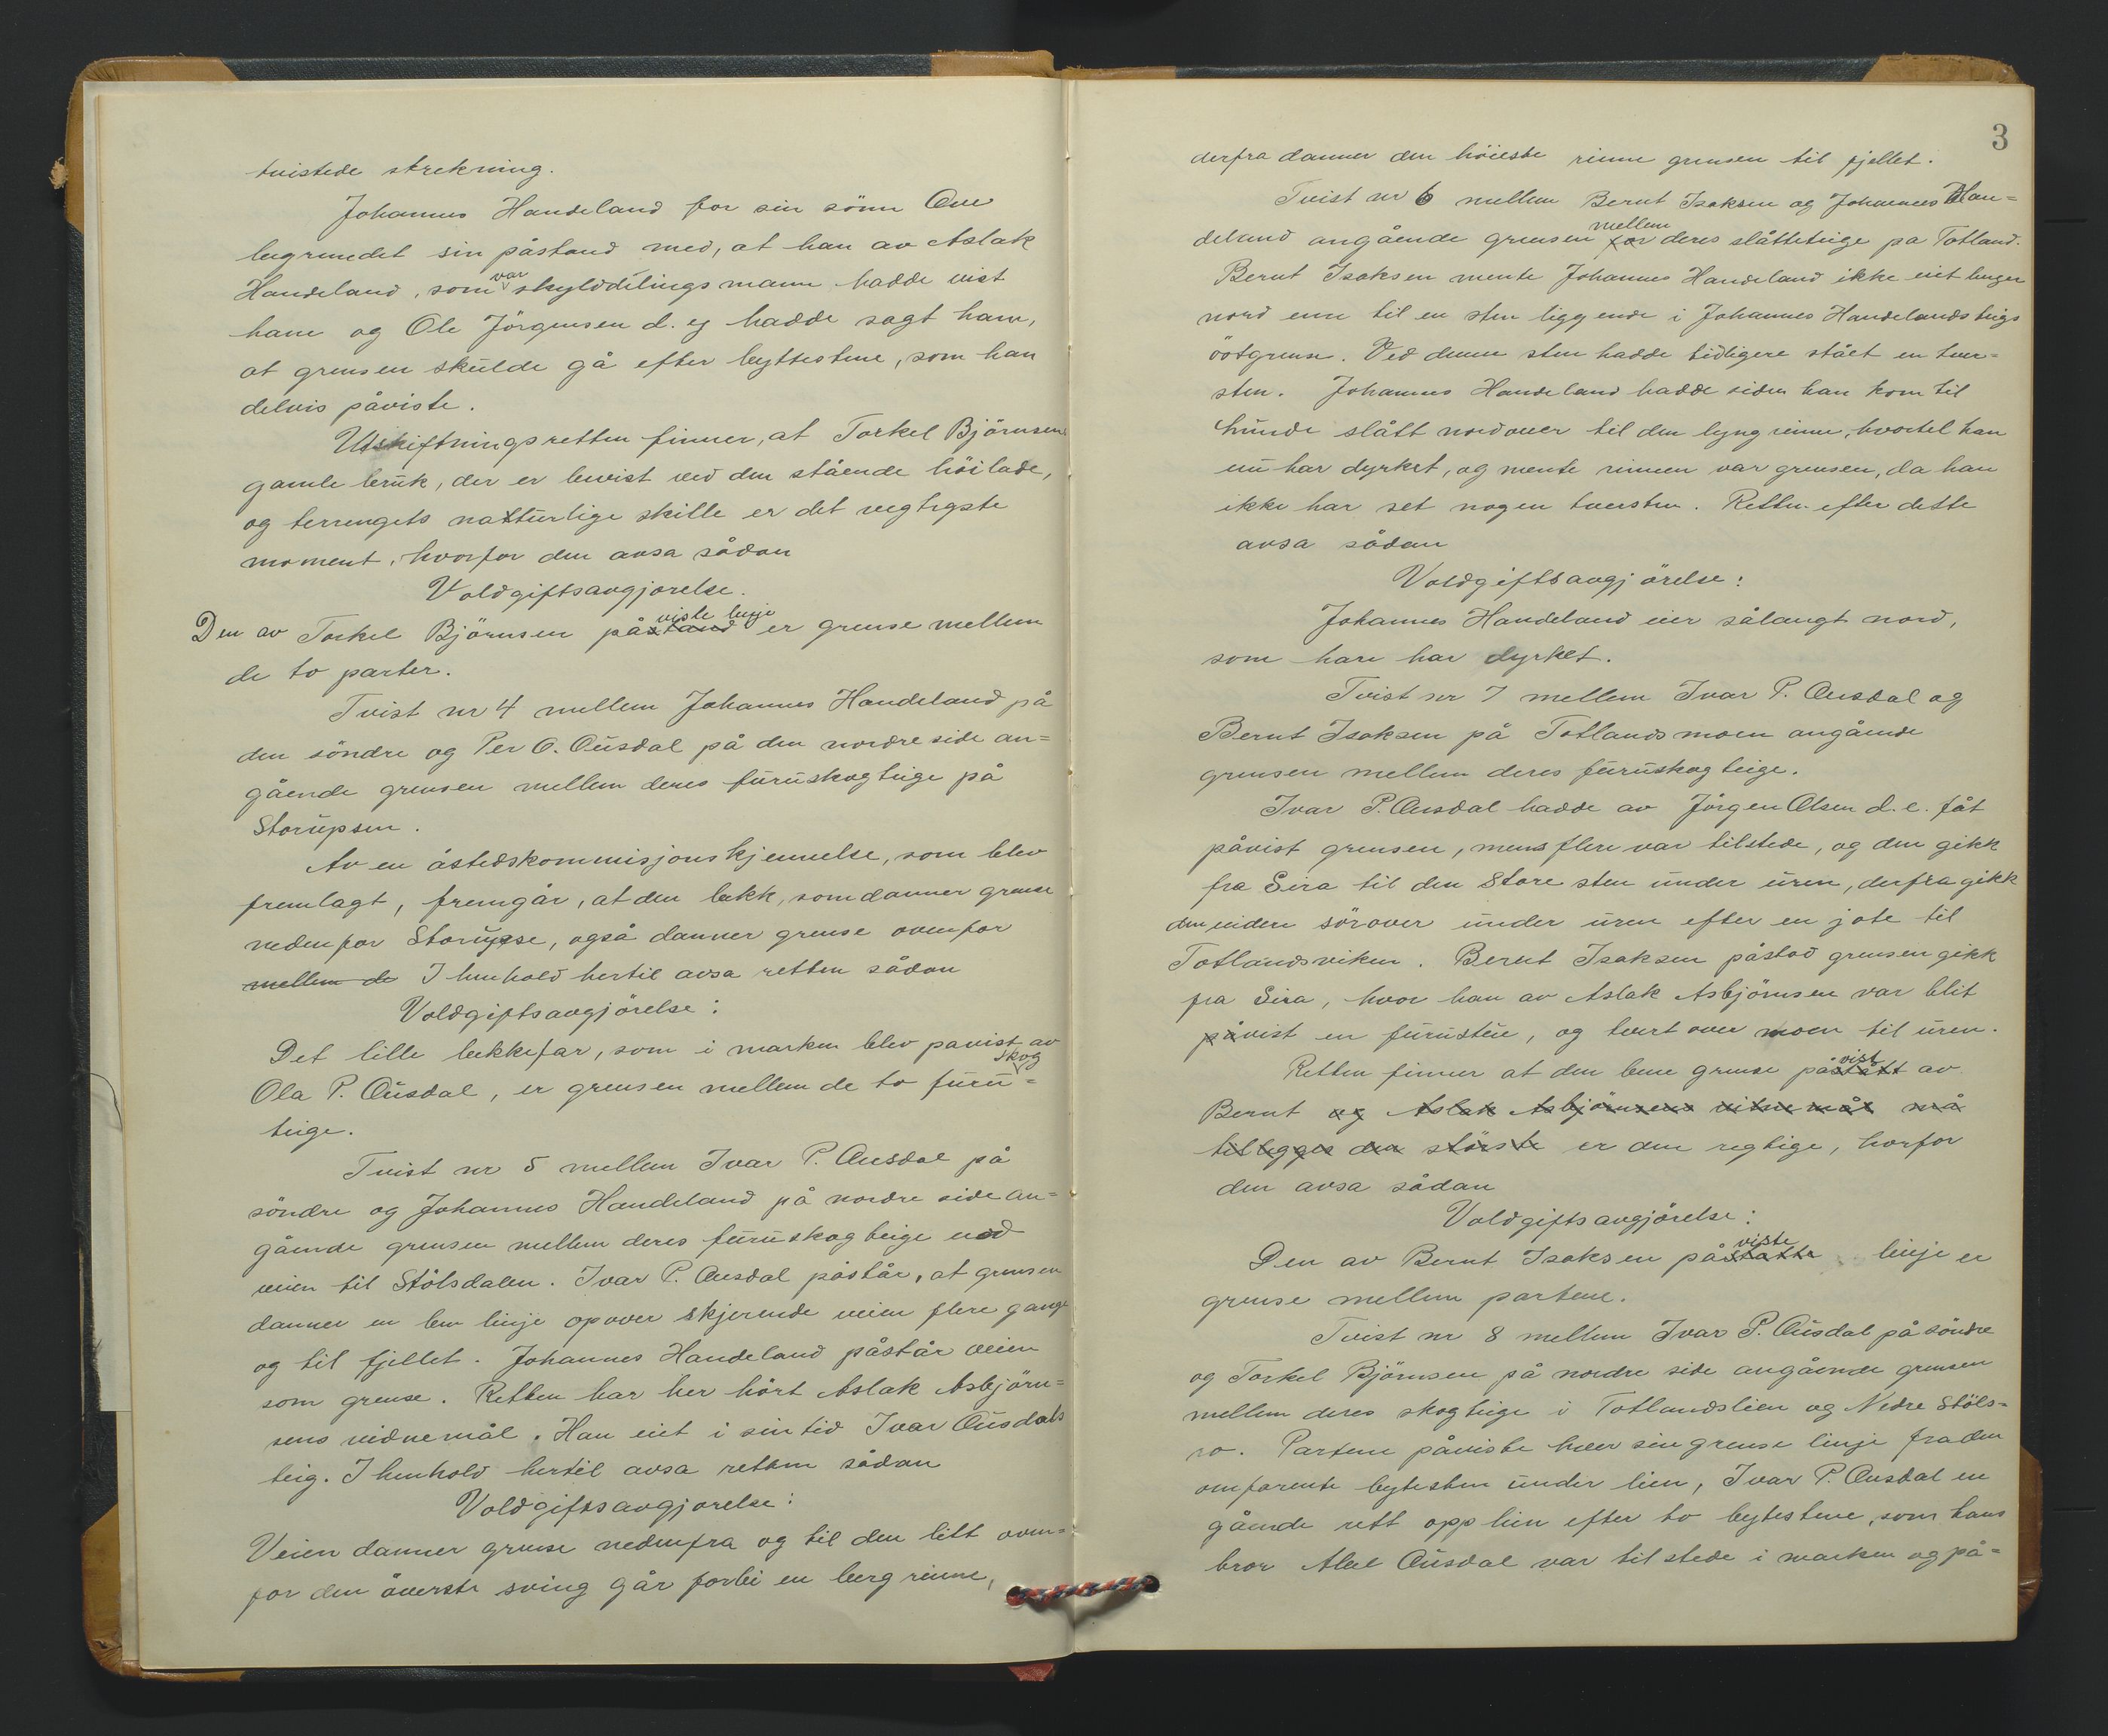 tvistede strekning.
Johannes Handeland for sin sönn Ove
begrundet sin påstand med, at han av Aslak
Handeland, som var skylddelingsmann hadde vist
ham og Ole Jörgensen d. e. hadde sagt ham,
at grensen skulde gå efter byttestene, som han
delvis påviste.
Utskiftningsretten finner, at Torkel Björnsens
gamle bruk, der er bevist ved den stående höilade,
og terrengets natturlige skille er det vegtigste
moment, hvorfor den avsa sådan
Voldgiftsavgjorelse.
Den av Torkel Björnsen påstand viste linje er grense mellem
de to parter.
Tvist nr 4 mellem Johannes Handeland på
den söndre og Per O. Ousdal på den nordre side an=
gående grensen mellem deres furuskogteige på
Storupsen.
Av en åstedskommisjonskjennelse, som blev
fremlagt, fremgår, at den bekk, som danner grense
nedenfor Storupse, også danner grense ovenfor
mellem de I henhold hertil avsa retten sådan
Voldgiftsavgjörelse:
Det lille bekkefar, som i marken blev pavist av
Ola P. Ousdal, er grensen mellem de to furu=skog
teige.
Tvist nr 5 mellem Ivar P. Ousdal på
söndre og Johannes Handeland på nordre side an=
gående grensen mellem deres furuskogteige ved
veien til Stölsdalen. Ivar P. Ousdal påstår, at grensen
danner en ben linje opover skjerende veien flere gange
og til fjellet. Johannes Handeland påstår veien
som grense. Retten har her hört Aslak Asbjörn=
sens vidnemål. Han eiet i sin tid Ivar Ousdals
teig. I henhold hertil avsa retten sådan
Voldgiftsavgjorelse:
Veien danner grense nedenfra og til den litt oven=
for den överste sving går forbi en berg rinne,
3
derfra danner den höieste rinne grensen til fjellet.
Tvist nr 6 mellem Bernt Isaksen og Johannes Han=
deland angående grensen for mellem deres slåtteteige pa Totland.
Bernt Isaksen mente Johannes Handeland ikke eiet lenger
nord enn til en sten liggende i Johannes Handelands teigs
östgrense. Ved denne sten hadde tidligere stået en tver=
sten. Johannes Handeland hadde siden han kom til
hunde slått nordover til den lyng rinne, hvortil han
nu har dyrket, og mente rinnen var grensen, da han
ikke har set nogen tversten. Retten efter dette
avsa sådan
Voldgiftsavgjörelse:
Johannes Handeland eier sålangt nord,
som han har dyrket.
Tvist nr 7 mellem Ivar P. Ousdal og
Bernt Isaksen på Totlandsmoen angående
grensen mellem deres furuskogteige.
Ivar P. Ousdal hadde av Jörgen Olsen d. e. fåt
påvist grensen, mens flere var tilstede, og den gikk
fra Sira til den Store sten under uren, derfra gikk
den videre sörover under uren efter en jote til
Totlandsviken. Bernt Isaksen påstod grensen gikk
fra Sira, hvor han av Aslak Asbjörnsen var blit
påvist en furustuv, og tvert over moen til uren.
Retten finner at den bene grense påstått vist av
Bernt og Aslak Asbjörnsens vitnemål må
tillegges den störste er den regtige, hvorfor
den avsa sådan
Voldgiftsavgjörelse:
Den av Bernt Isaksen påstatte viste linje er
grense mellem partene.
Tvist nr 8 mellem Ivar P. Ousdal på söndre
og Torkel Björnsen på nordre side angående grensen
mellem deres skogteige i Totlandslien og Nedre Stöls=
ro. Partene påviste hver sin grense linje fra den
omforente bytesten under lien, Ivar P. Ousdal en
gående rett opp lien efter to bytestene, som hans
bror Abel Ousdal var til stede i marken og på=